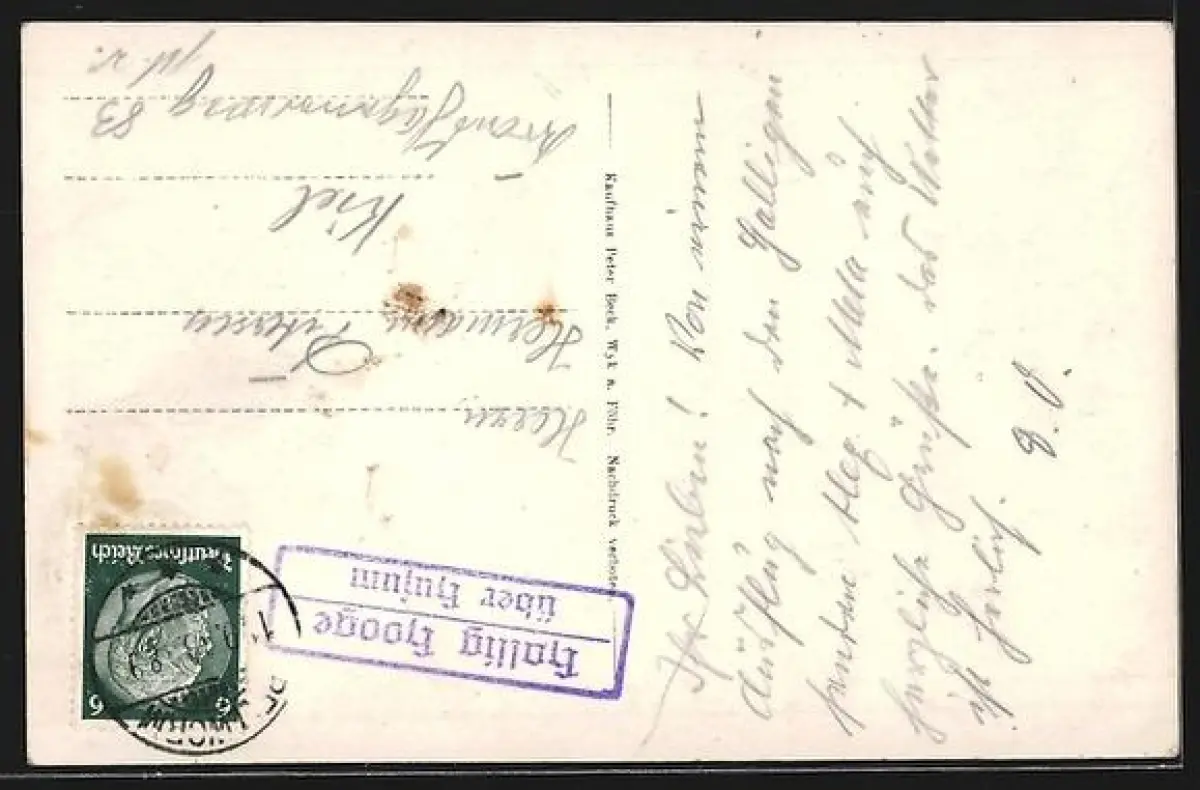 Ihr Lieben! Von einem
Ausflug nach den Halligen
senden Meg. + Mella auch
herzliche Grüße. Das Wetter
ist herlich.
Kaufhaus Peter Beck, Wyk a. Föhr. Nachdruck verboten
Deutsches Reich
6 6
HUSUM
Hallig Hooge
über Husum
Herrn
Hermann Petersen
Kiel
Hagenerweg 83